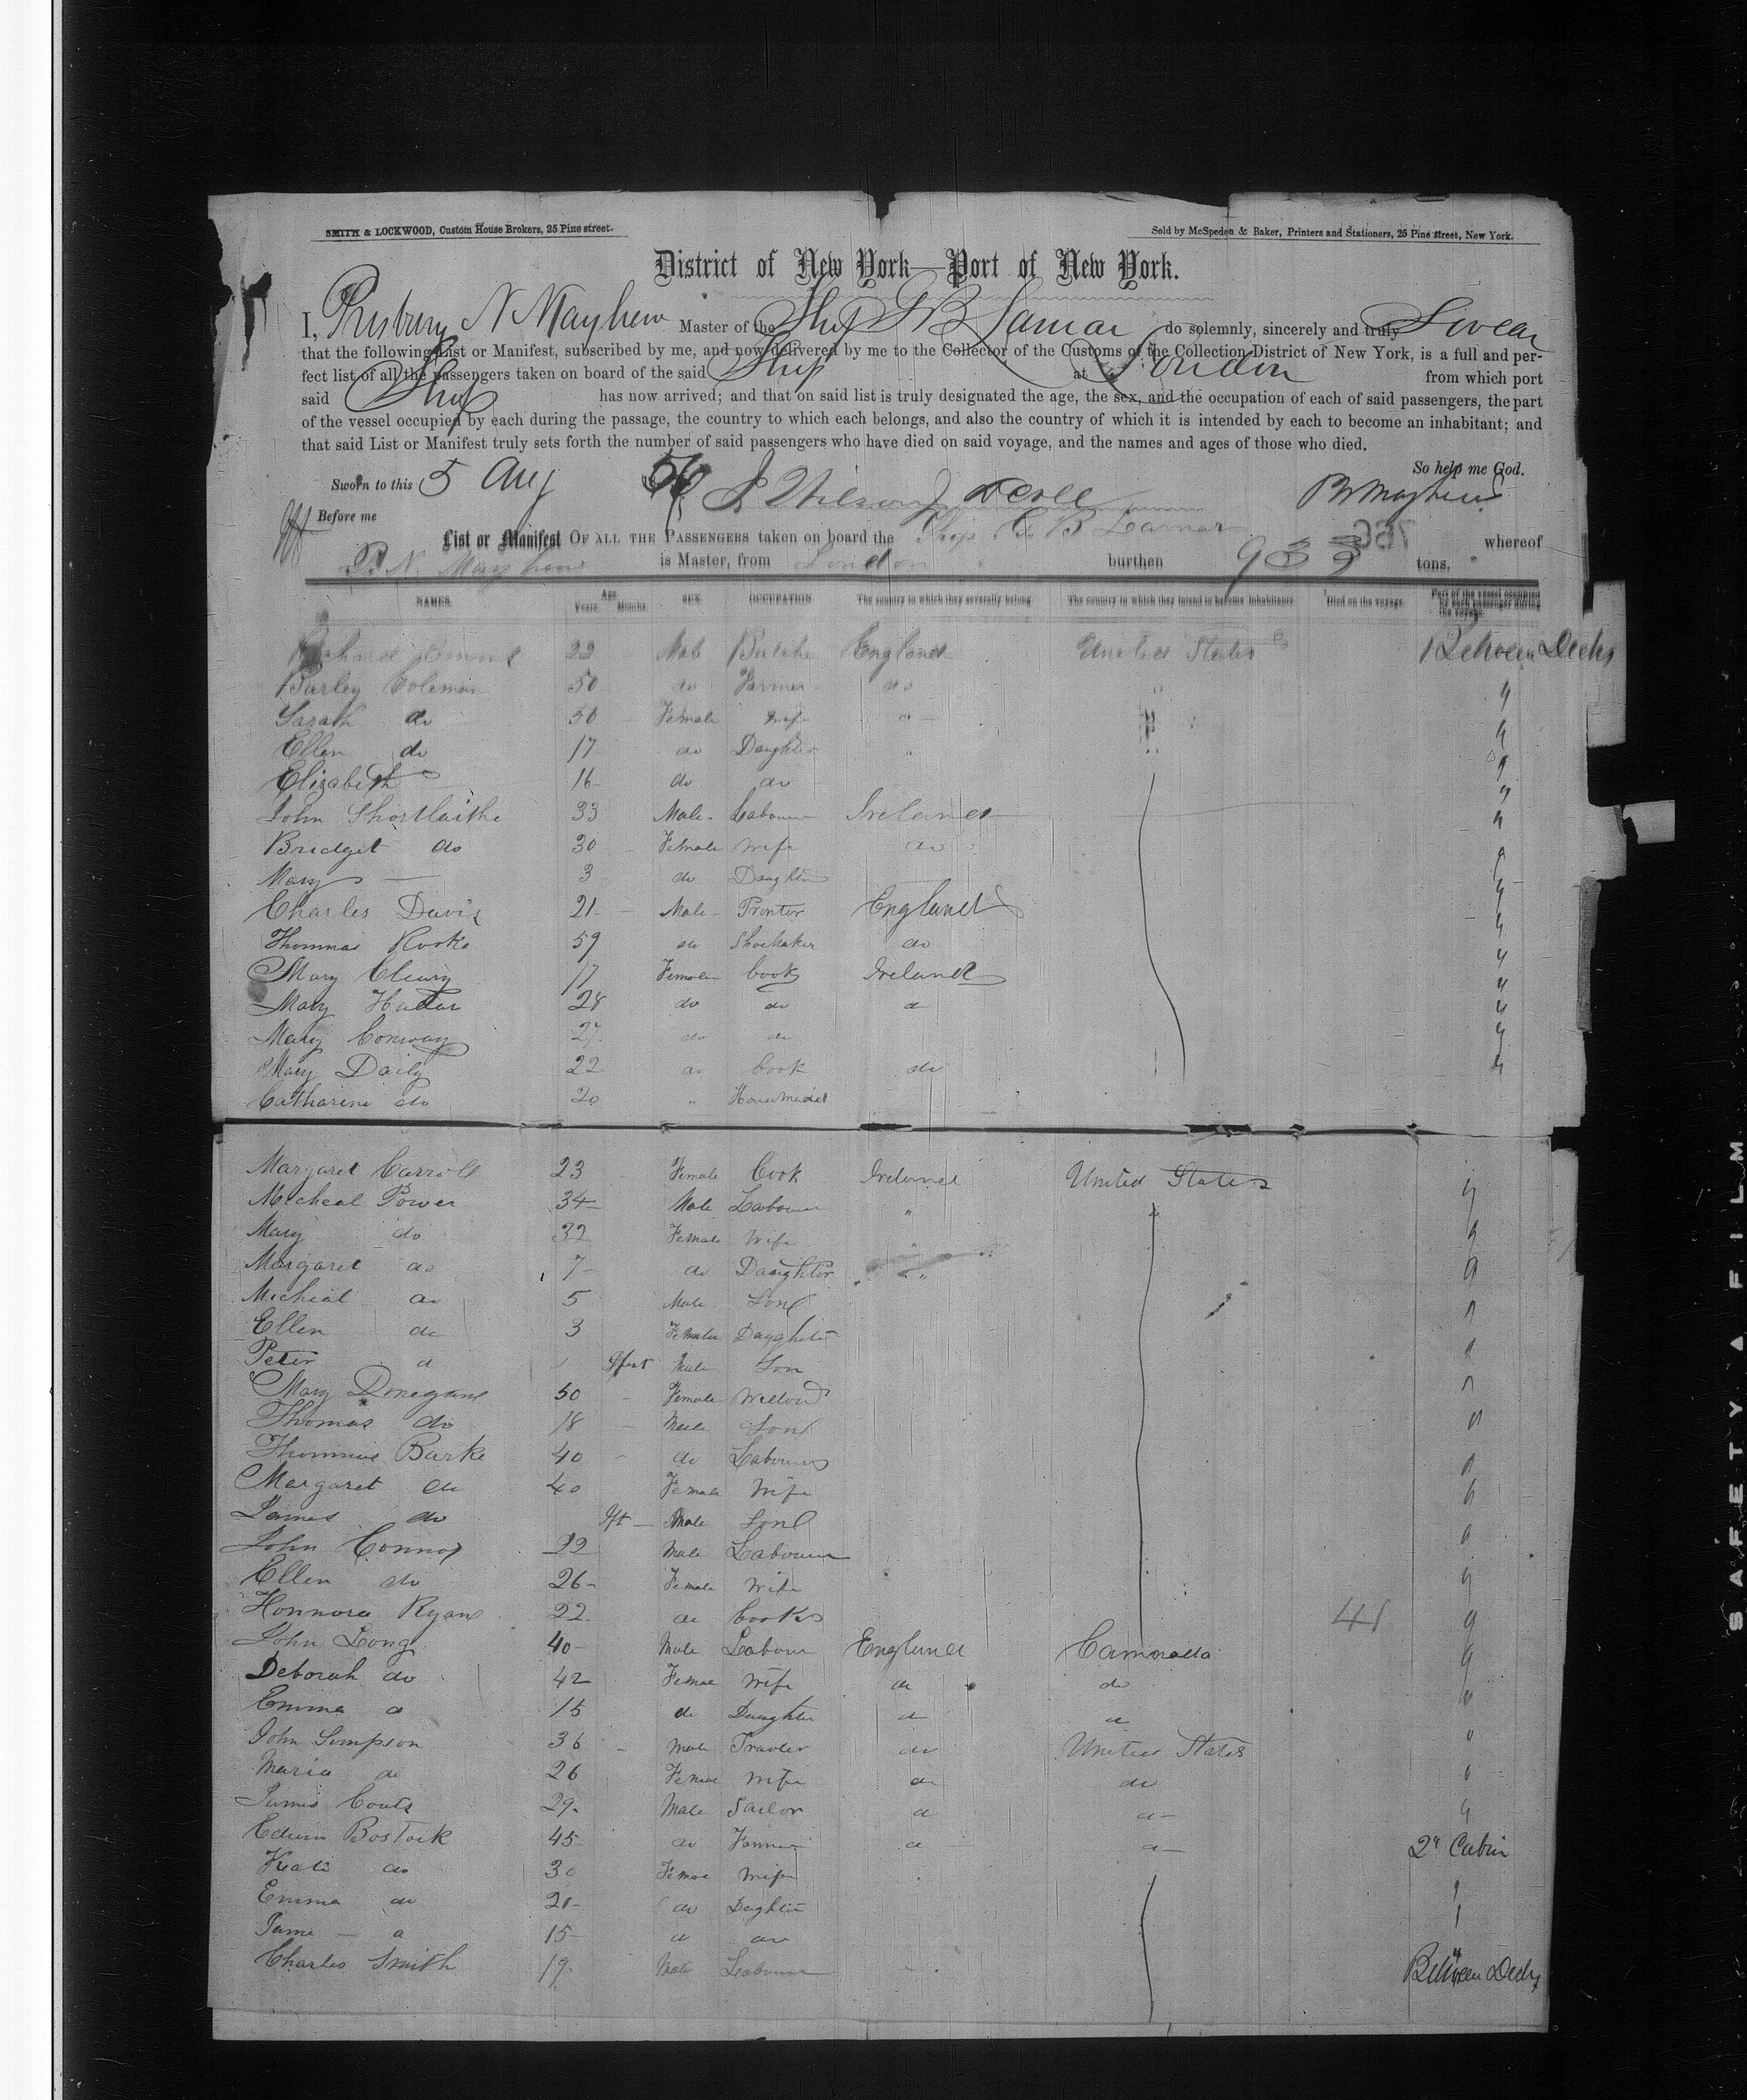 SMITH & LOCKWOOD, Custom House Brokers, 25 Pine street.
Sold by McSpedon & Baker, Printers and Stationers, 25 Pine street, New York.
District of New York—Port of New York.
I, Presbury N Mayhew Master of the Ship G B Lamar do solemnly, sincerely and truly Swear
that the following List or Manifest, subscribed by me, and now delivered by me to the Collector of the Customs of the Collection District of New York, is a full and per-
fect list of all the passengers taken on board of the said Ship at London from which port
said Ship has now arrived; and that on said list is truly designated the age, the sex, and the occupation of each of said passengers, the part
of the vessel occupied by each during the passage, the country to which each belongs, and also the country of which it is intended by each to become an inhabitant; and
that said List or Manifest truly sets forth the number of said passengers who have died on said voyage, and the names and ages of those who died.
So help me God.
Sworn to this 5 Aug 56 P N Mayhew
Before me
List or Manifest OF ALL THE PASSENGERS taken on board the Ship G B Lamar whereof
P. N. Mayhew is Master, from London burthen 933 tons,
NAMES. Age. Years. Months. SEX. OCCUPATION. The country to which they severally belong. The country in which they intend to become inhabitants. Died on the voyage. Part of the vessel occupied by each passenger during the voyage.
Richard 22 Male England United States Between Decks
Burley Coleman 50 do Farmer do " "
Sarah do 50 Female Wife do "
Ellen do 17 do Daughter " "
Elizabeth 16 do do "
John Shortlaithe 33 Male Labourer Ireland "
Bridget do 30 Female Wife do "
Mary 3 do Daughter "
Charles Davis 21 Male Printer England "
Thommas Rooke 59 do Shoemaker do "
Mary Cleary 17 Female Cook Ireland "
Mary 28 do do do "
Mary Conway 27 do do "
Mary Daily 22 do Cook do "
Catharine do 20 " Housemaid
Margaret Carroll 23 Female Cook Ireland United States "
Micheal Power 34 Male Labourer " "
Mary do 32 Female Wife " "
Margaret do 7 do Daughter " "
Micheal do 5 Male Son "
Ellen do 3 Female Daughter "
Peter do Male Son "
Mary Donegane 50 Female Widow "
Thomas do 18 Male Son "
Thommas Burke 40 do Labourer "
Margaret do 40 Female Wife "
James do Male Son "
John Connor 22 Male Labourer
Ellen do 26 Female Wife "
Honnora Ryan 22 do Cook 41 "
John Long 40 Male Labour England Cannada "
Deborah do 42 Female Wife do do "
Emma do 15 do Daughter do do
John Simpson 36 Male do United States "
Maria do 26 Female Wife do do "
James Couts 29 Male Sailor do do "
Edwin Bostock 45 do Farmer do do 2d Cabin
Kate do 30 Female Wife
Emma do 21 do Daughter "
Jane do 15 do do "
Charles Smith 19 Male Labourer Between Decks
SAFETY FILM